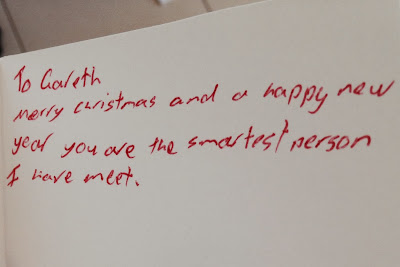 To Gareth
merry christmas and a happy new
year you are the smartest person
I have meet.